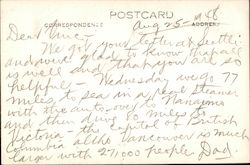 POSTCARD
CORRESPONDENCE
ADDRESS
Aug 25
Dear
We got your letter at Seattle
and were glad to know Grandpa
is well and that you are so
helpful - Wednesday we go 77
miles to sea in a real steamer
with the auto over to Nanaimo
and then drive 80 miles to
Victoria - the capital of British
Columbia altho Vancouver is much
larger with 27,000 people. Dad.